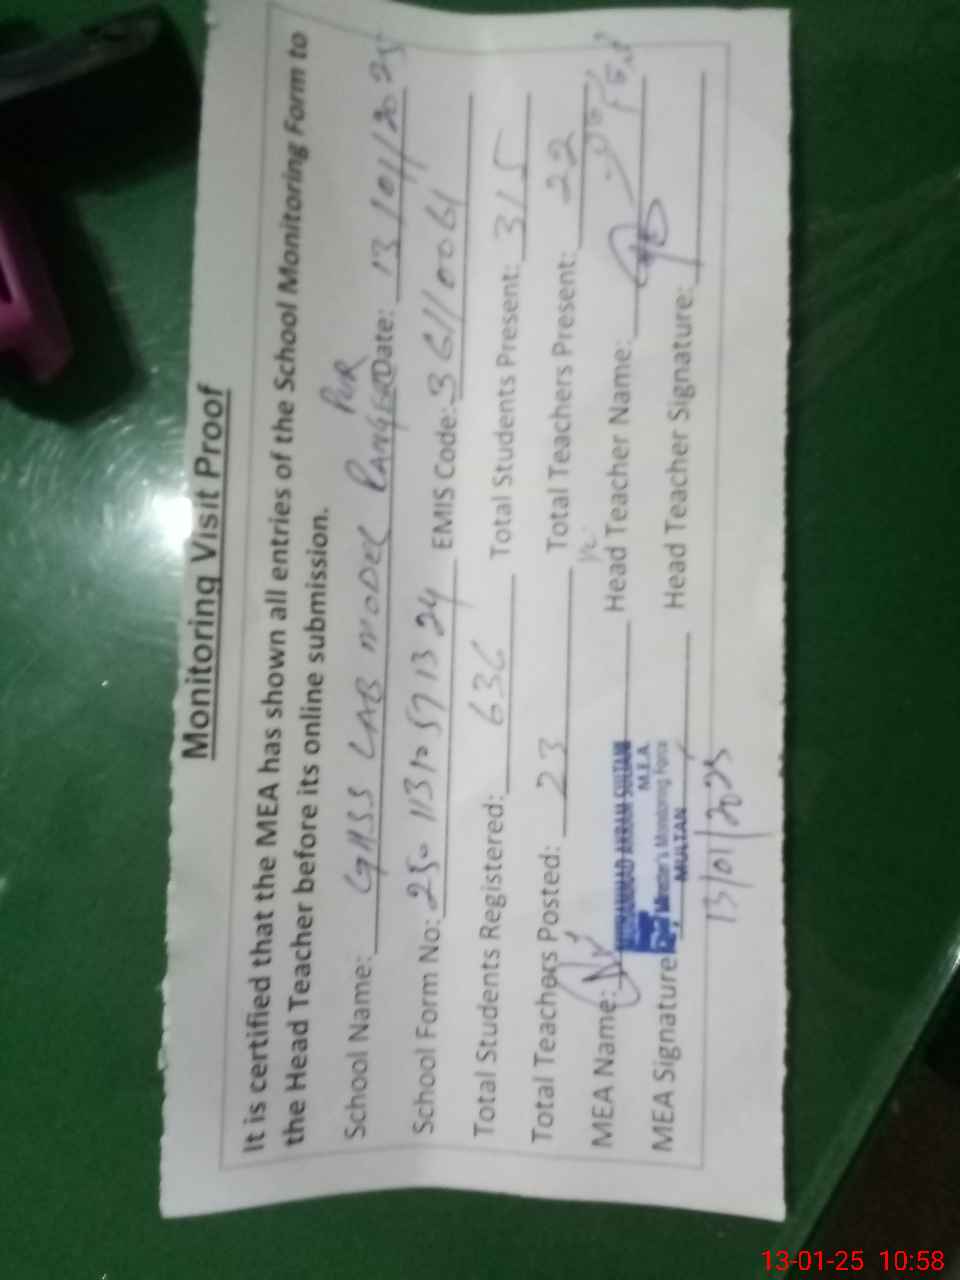 Monitoring Visit Proof
It is certified that the MEA has shown all entries of the School Monitoring Form to
the Head Teacher before its online submission.
School Name: GHSS LAB MODEL RANGEELPUR Date: 13/01/2025
School Form No: 250 113 10 57 13 24 EMIS Code: 36110061
Total Students Registered: 636 Total Students Present: 315
Total Teachers Posted: 23 Total Teachers Present: 22
MEA Name: MUHAMMAD AKRAM SULTANI Head Teacher Name:
M.E.A.
Chief Minister's Monitoring Force
MEA Signature MULTAN Head Teacher Signature:
13/01/2025
13-01-25 10:58